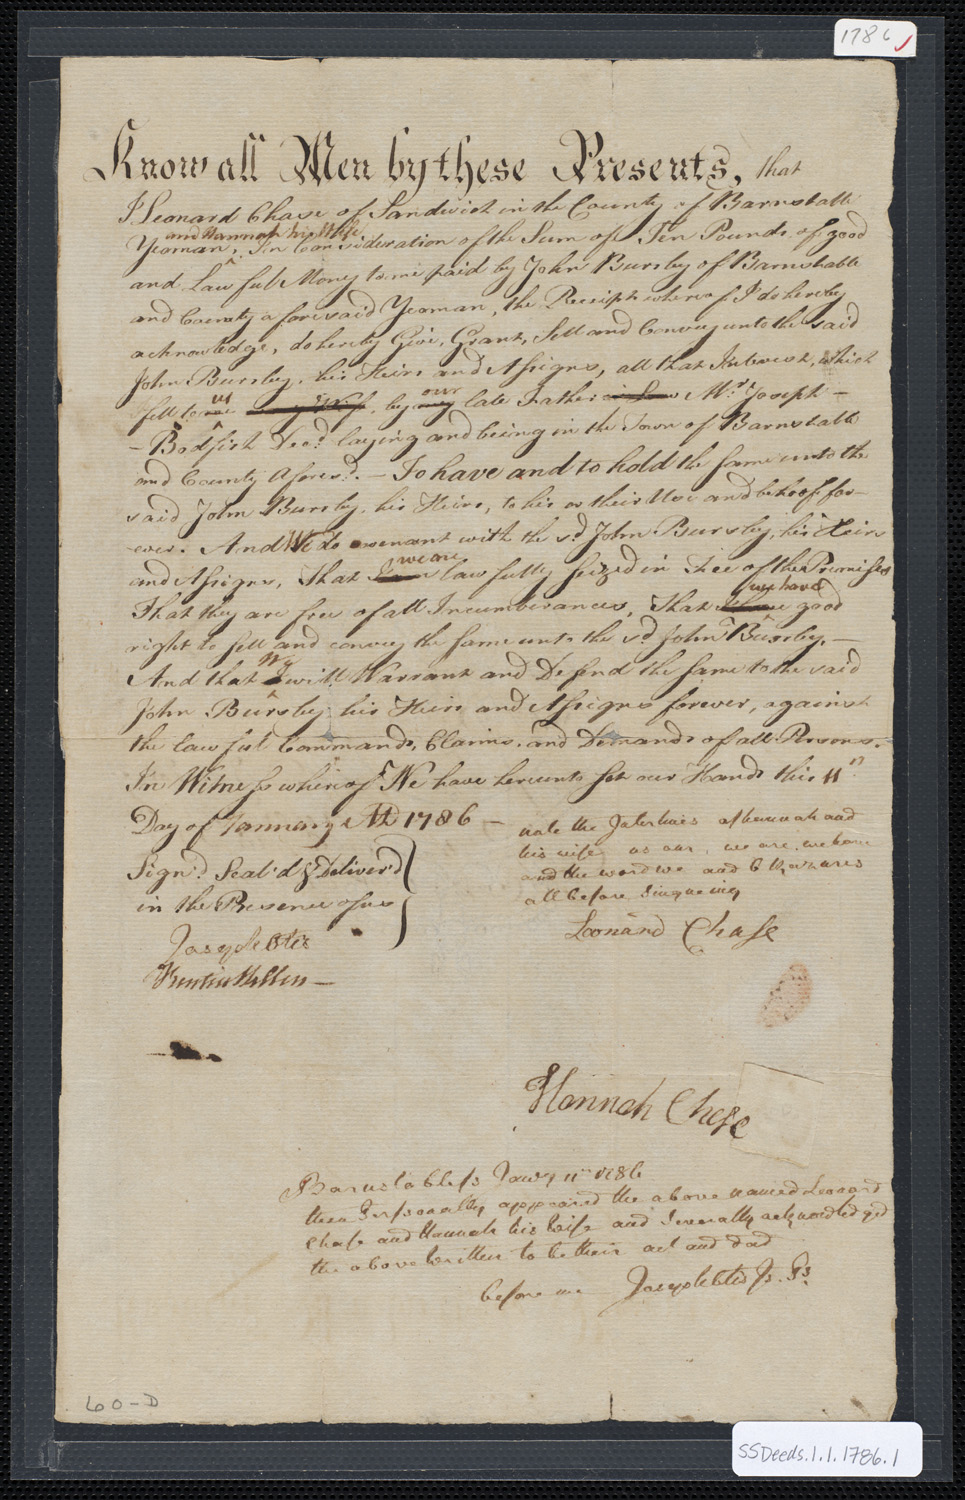 1786
Know all Men by these Presents, that
I Leonard Chase of Sandwich in the County of Barnstable
and Hannah his Wife
Yeoman, In Consideration of the Sum of Ten Pounds of good
and Lawful Mony to me paid by John Bursley of Barnstable
and County aforesaid Yeoman, the Receipt whereof I do hereby
acknowledge, do hereby Give, Grant, Sell and Convey unto the said
John Bursley, his Heirs and Assigns, all that Interest, which
us our
fell to me my Wife, by my late Father in Law Mr. Joseph —
— Bodfish Decd. laying and being in the Town of Barnstable
and County Aforesd. — To have and to hold the same unto the
said John Bursley, his Heirs, to his or their Use and behoof for-
ever. And We do covenant with the sd John Bursley, his Heirs
we are
and Assigns, That I am lawfully seized in Fee of the Premises
we have
That they are free of all Incumberances, That I have good
right to sell and convey the same unto the sd John Bursley. —
We
And that I will Warrant and Defend the same to the said
John Bursley his Heirs and Assigns forever, against
the lawful Commands, Claims, and Demands of all Persons. —
In Witness whereof We have hereunto set our Hands this 11th
Day of January AD 1786 —
note the Interlines of hannah and
his wife us our, we are, we have
and the word we and
all before Singneing
Sign'd Seal'd & Deliver'd
in the Presence of us
Leonard Chase
Hannah Chase
Barnstable ss Jany 11th 1786
then Personally appeared the above named Leonard
Chase and Hannah his Wife and Severally acknowledged
the above written to be their act and dad
before me Js. Ps.
60-D
SSDeeds.1.1.1786.1